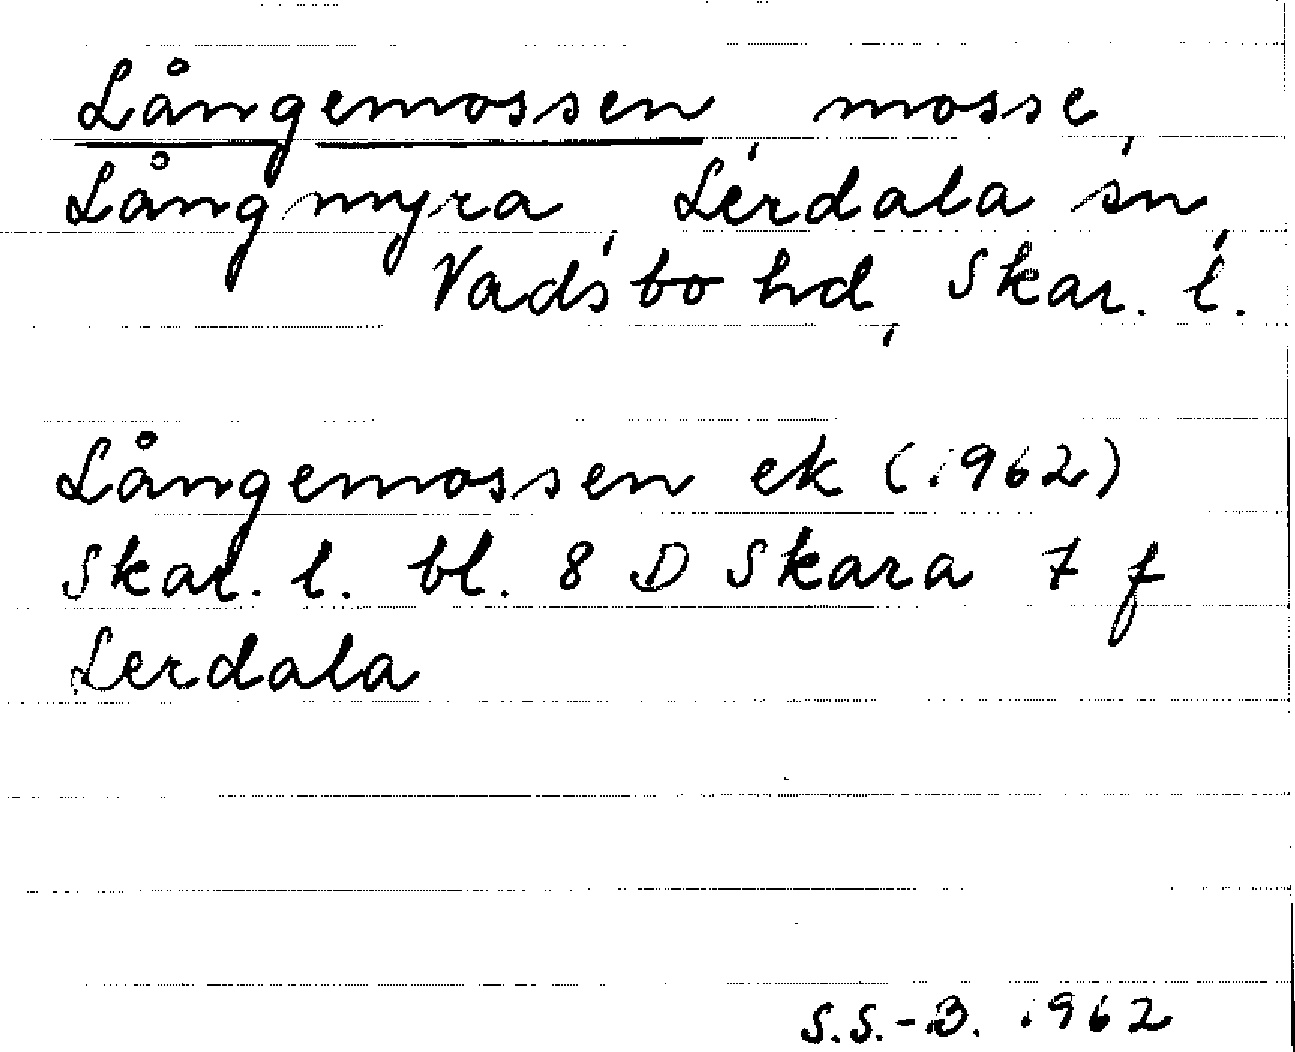 Långemossen, mosse,
Långmyra, Lerdala sn,
Vadsbo hd, Skar. l.
Långemossen ek (1962)
Skar. l. bl. 8 D Skara 7 f
Lerdala
S.S.-B. 1962